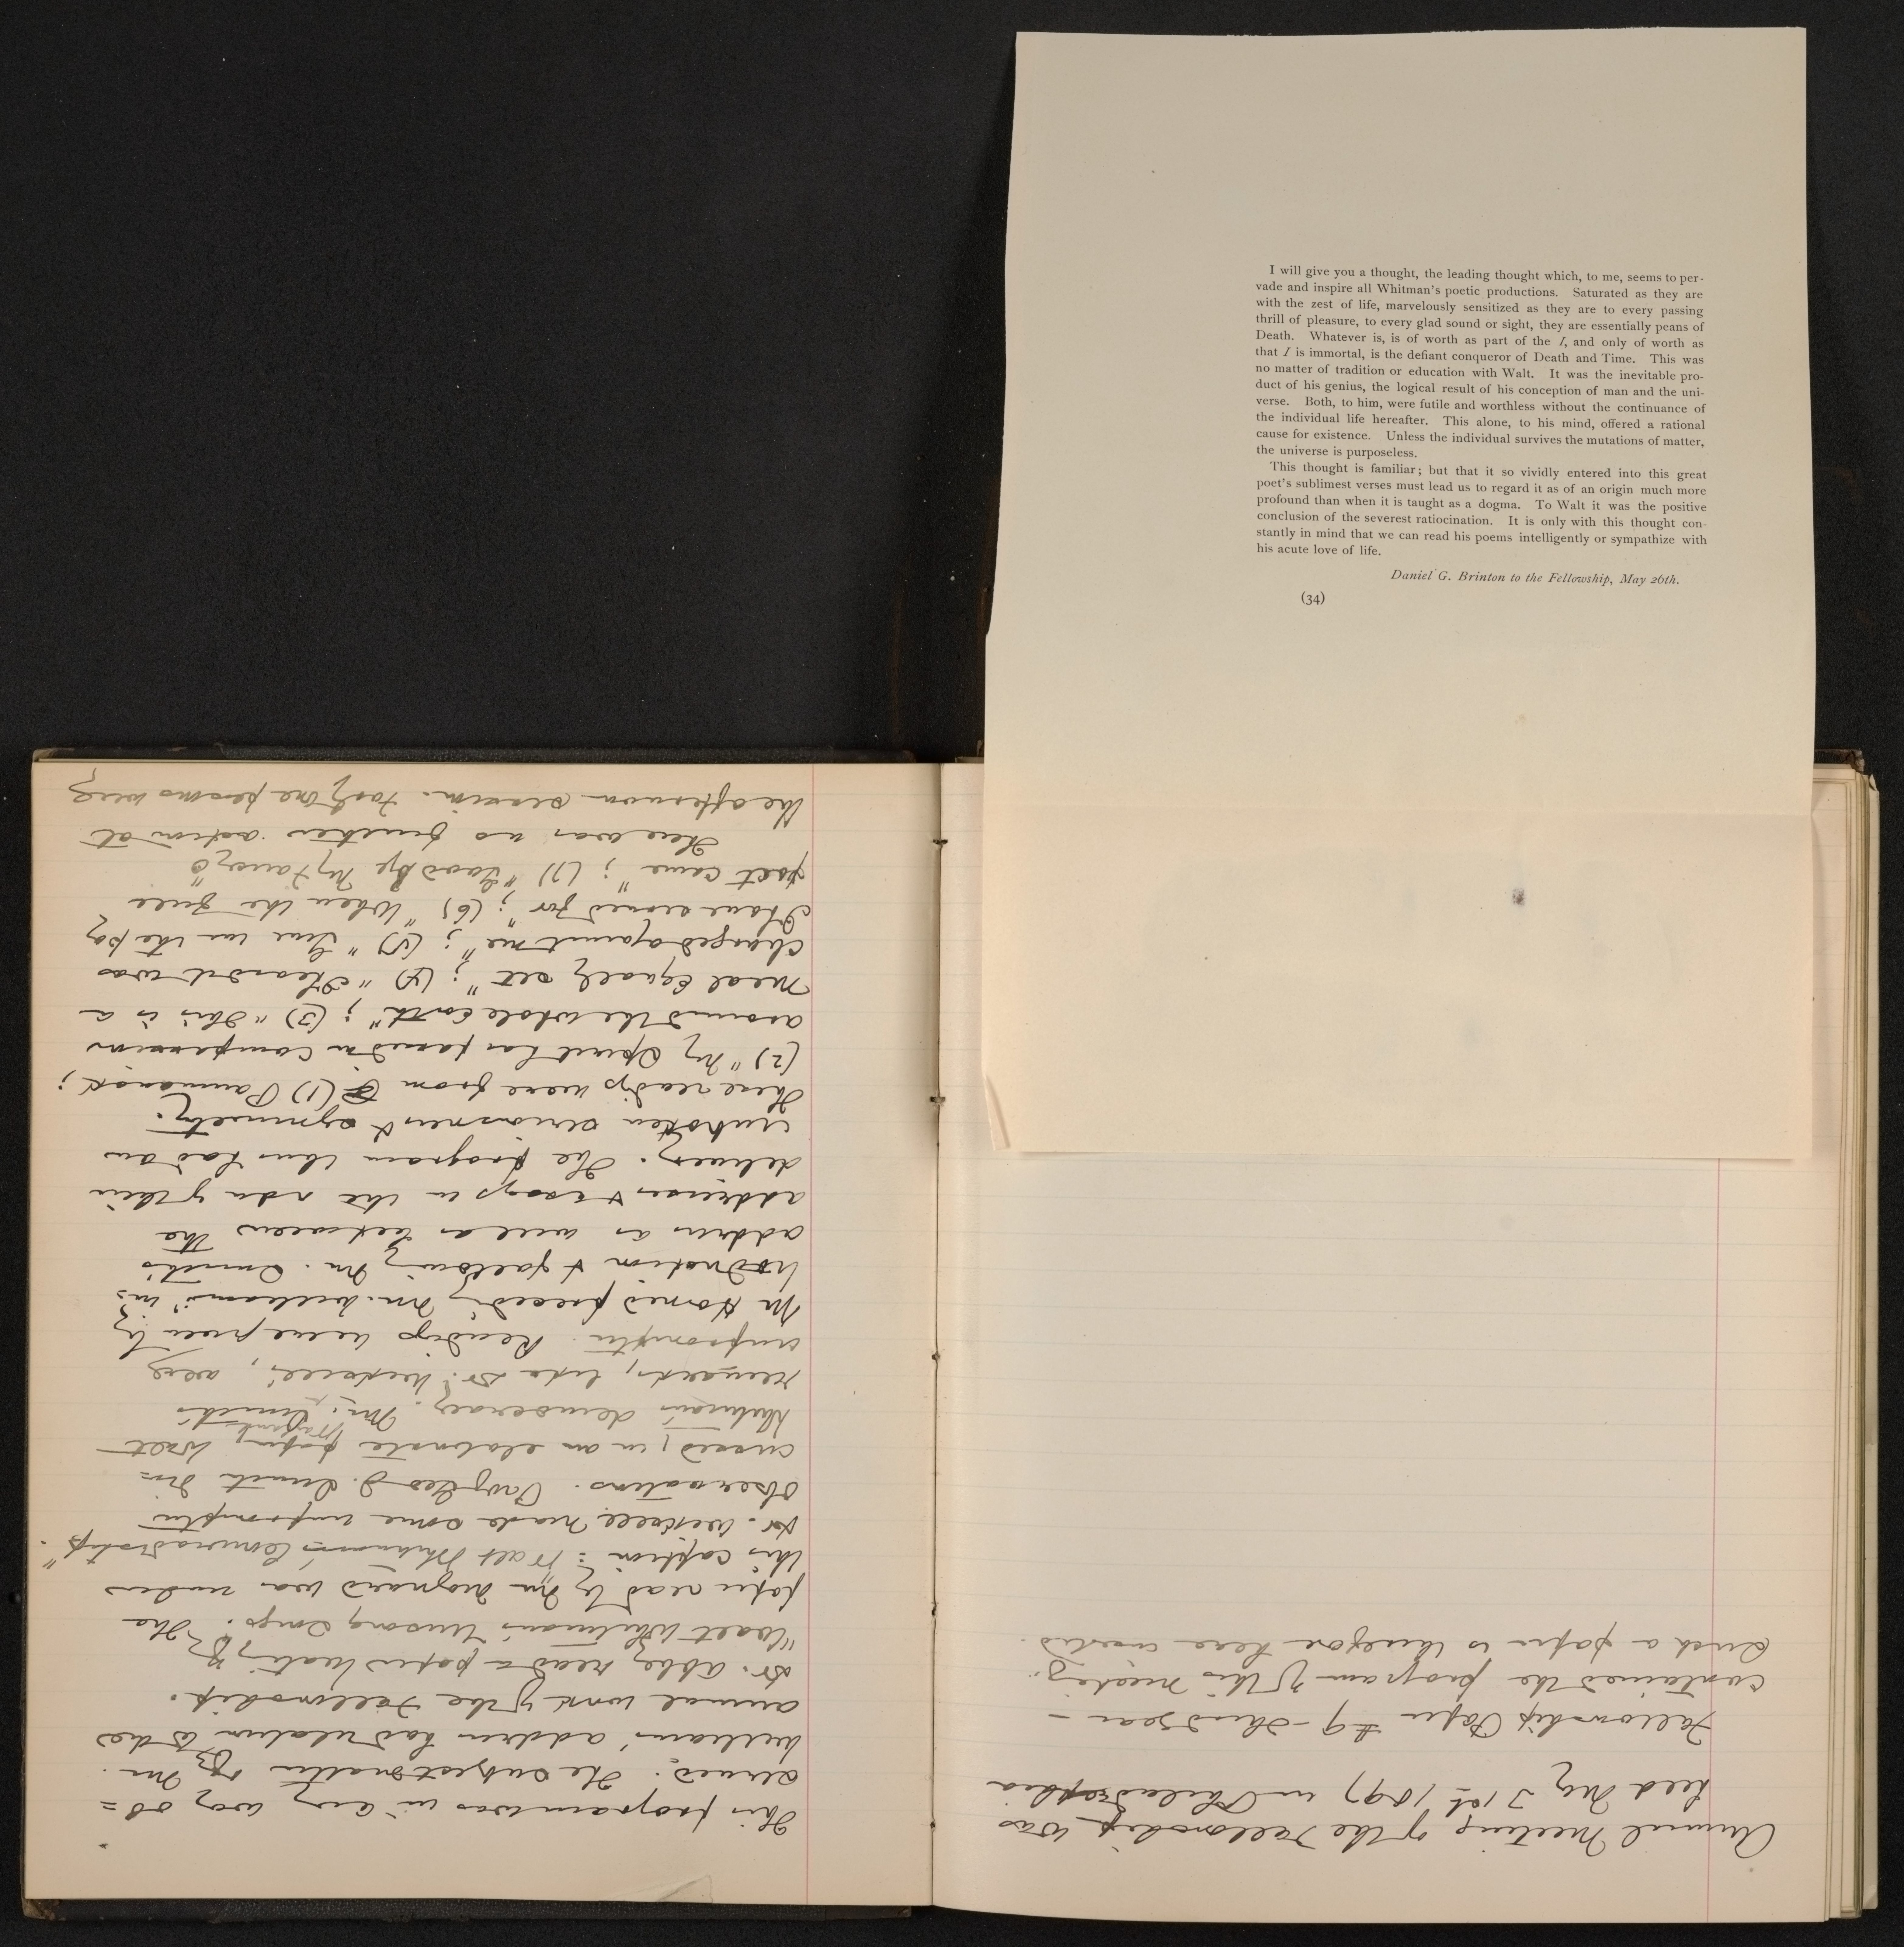 I will give you a thought, the leading thought which, to me, seems to per-
vade and inspire all Whitman's poetic productions. Saturated as they are
with the zest of life, marvelously sensitized as they are to every passing
thrill of pleasure, to every glad sound or sight, they are essentially peans of
Death. Whatever is, is of worth as part of the I, and only of worth as
that I is immortal, is the defiant conqueror of Death and Time. This was
no matter of tradition or education with Walt. It was the inevitable pro-
duct of his genius, the logical result of his conception of man and the uni-
verse. Both, to him, were futile and worthless without the continuance of
the individual life hereafter. This alone, to his mind, offered a rational
cause for existence. Unless the individual survives the mutations of matter,
the universe is purposeless.
This thought is familiar; but that it so vividly entered into this great
poet's sublimest verses must lead us to regard it as of an origin much more
profound than when it is taught as a dogma. To Walt it was the positive
conclusion of the severest ratiocination. It is only with this thought con-
stantly in mind that we can read his poems intelligently or sympathize with
his acute love of life.
Daniel G. Brinton to the Fellowship, May 26th.
(34)
Annual Meeting of the Fellowship was
held May 31st 1897 in Philadelphia
Fellowship Paper #9 - Third year -
contained the program of this meeting.
Such a paper is therefore here inserted.
This program was in every way ob=
served. The subject matter of Mr.
Williams' address had relation to the
annual work of the Fellowship.
Dr. Abbey read a paper treating of
"Walt Whitman's Unsung Songs". The
paper read by Mr Maynard was under
this caption: "Walt Whitman's Comradeship".
Dr. Weksell made some impromptu
observations. Prof Leo G. Smith dis=
cussed, in an elaborate paper,
Whitman's democracy. Mr. Smith's
remarks, like Dr. Weksell's, were
impromptu. Readings were given by
Mr Horned preceding Mr. Williams' in=
troduction & following Mr. Smith's
address as well as between the
addresses & essays in the order of their
delivery. The program thus had an
unbroken seriousness & symmetry.
These readings were from (1) Paumanok;
(2) "My Spirit has passed in compassion
around the whole Earth"; (3) "This is a
meal equally set"; (4) "I heard it was
charged against me"; (5) "Give me the pay
I have served for"; (6) "When the full
poet came"; (7) "Good bye My Fancy"
There was no further action at
the afternoon session. Forty one persons were